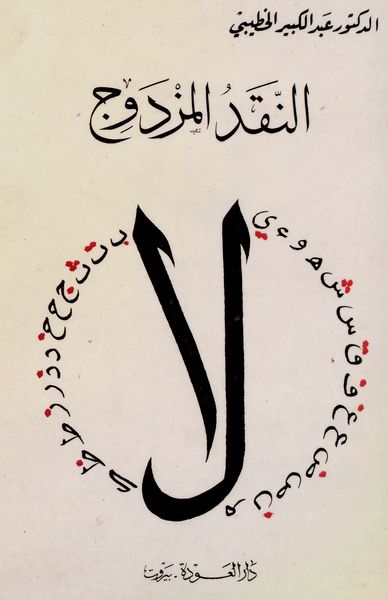 الدكتور عبد الكبير الخطيبي
النَّقدُ المُزْدَوِج
لا
ب ت ث ج ح خ د ذ ر ز ط ظ ك
ل م ن ص ض ع غ ف ق س ش ه و ء ي
دار العودة - بيروت